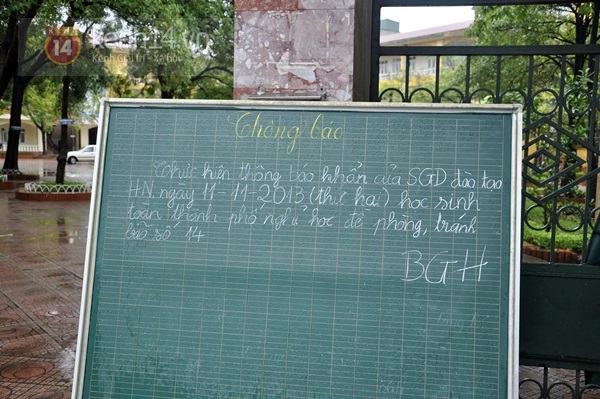 kenh14.vn
Kênh Giải trí - Xã hội
Thông báo
Thực hiện thông báo khẩn của SGD đào tạo
HN, ngày 11-11-2013 (thứ hai) học sinh
toàn thành phố nghỉ học để phòng, tránh
bão số 14
BGH